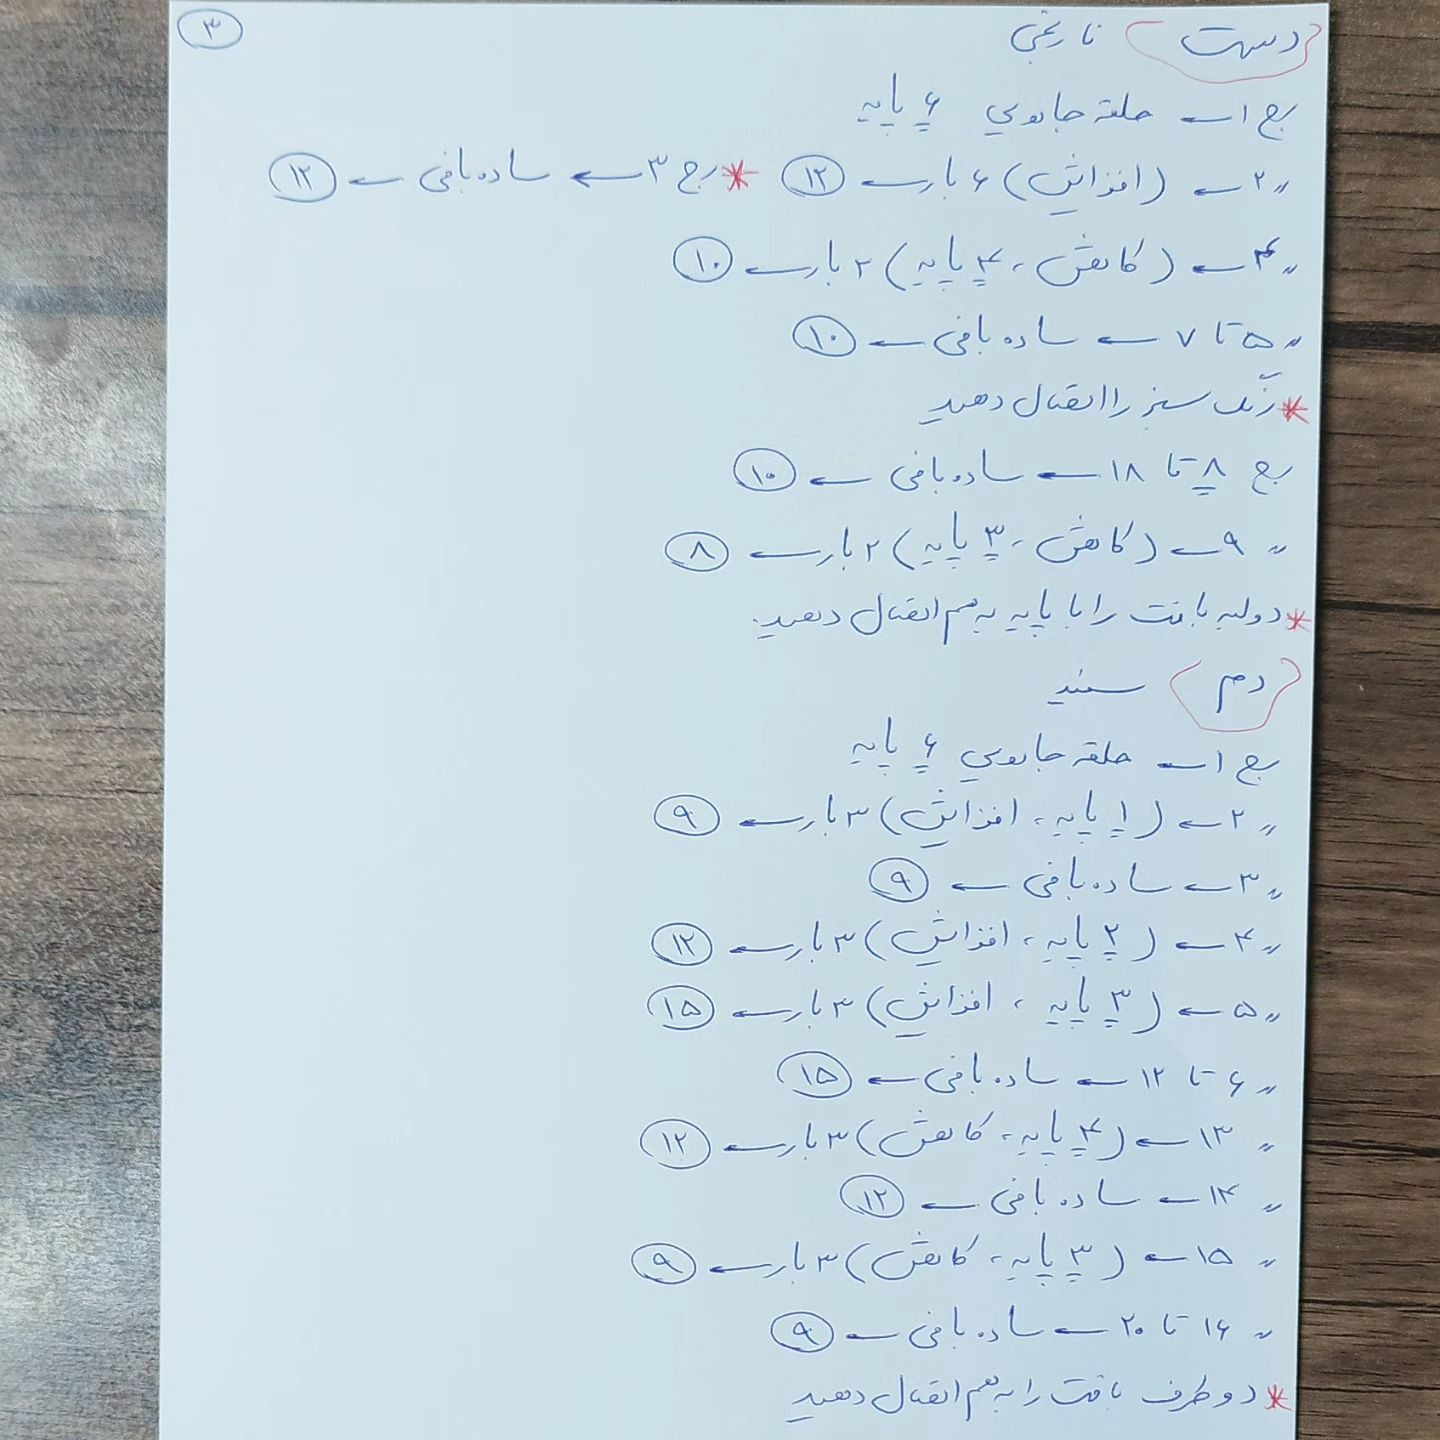 ۳
دست نارنجی
رج ۱ ← حلقه جادویی ۶ پایه
〃 ۲ ← (افزایش) ۶ بار ← ۱۲ * رج ۳ ← ساده بافی ← ۱۲
〃 ۴ ← (کاهش، ۴ پایه) ۲ بار ← ۱۰
〃 ۵ تا ۷ ← ساده بافی ← ۱۰
* رنگ سبز را اتصال دهید
رج ۸ تا ۱۸ ← ساده بافی ← ۱۰
〃 ۹ ← (کاهش، ۳ پایه) ۲ بار ← ۸
* دو لبه بافت را با پایه به هم اتصال دهید.
دم سفید
رج ۱ ← حلقه جادویی ۶ پایه
〃 ۲ ← (۱ پایه، افزایش) ۳ بار ← ۹
〃 ۳ ← ساده بافی ← ۹
〃 ۴ ← (۲ پایه، افزایش) ۳ بار ← ۱۲
〃 ۵ ← (۳ پایه، افزایش) ۳ بار ← ۱۵
〃 ۶ تا ۱۲ ← ساده بافی ← ۱۵
〃 ۱۳ ← (۴ پایه، کاهش) ۳ بار ← ۱۲
〃 ۱۴ ← ساده بافی ← ۱۲
〃 ۱۵ ← (۳ پایه، کاهش) ۳ بار ← ۹
〃 ۱۶ تا ۲۰ ← ساده بافی ← ۹
* دو طرف بافت را به هم اتصال دهید